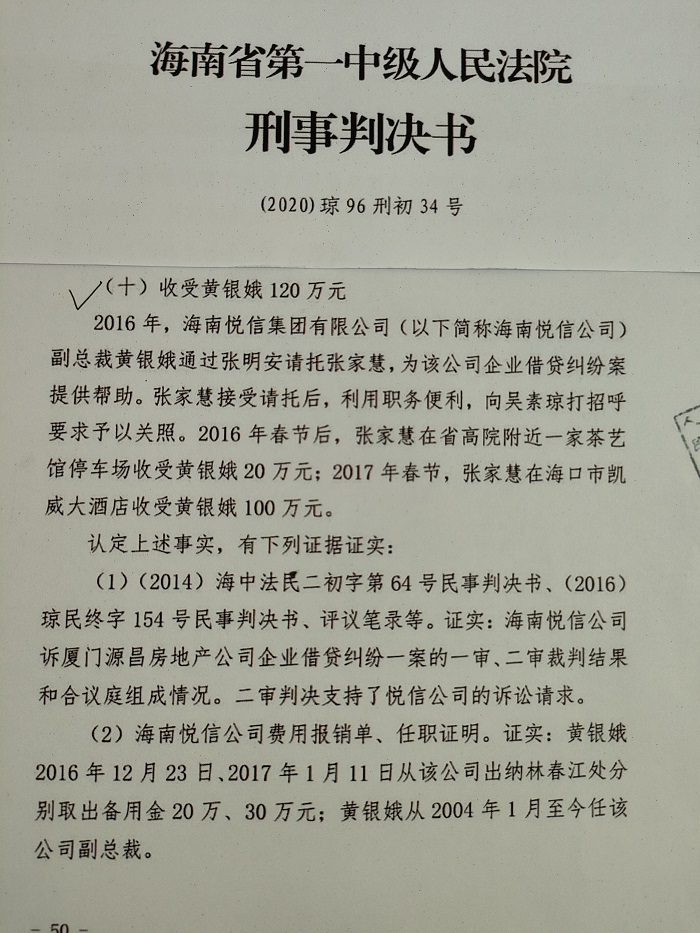 海南省第一中级人民法院
刑事判决书
(2020)琼96刑初34号
(十)收受黄银娥120万元
2016年，海南悦信集团有限公司（以下简称海南悦信公司）
副总裁黄银娥通过张明安请托张家慧，为该公司企业借贷纠纷案
提供帮助。张家慧接受请托后，利用职务便利，向吴素琼打招呼
要求予以关照。2016年春节后，张家慧在省高院附近一家茶艺
馆停车场收受黄银娥20万元；2017年春节，张家慧在海口市凯
威大酒店收受黄银娥100万元。
认定上述事实，有下列证据证实：
(1)(2014)海中法民二初字第64号民事判决书、(2016)
琼民终字154号民事判决书、评议笔录等。证实：海南悦信公司
诉厦门源昌房地产公司企业借贷纠纷一案的一审、二审裁判结果
和合议庭组成情况。二审判决支持了悦信公司的诉讼请求。
(2)海南悦信公司费用报销单、任职证明。证实：黄银娥
2016年12月23日、2017年1月11日从该公司出纳林春江处分
别取出备用金20万、30万元；黄银娥从2004年1月至今任该
公司副总裁。
- 50 -